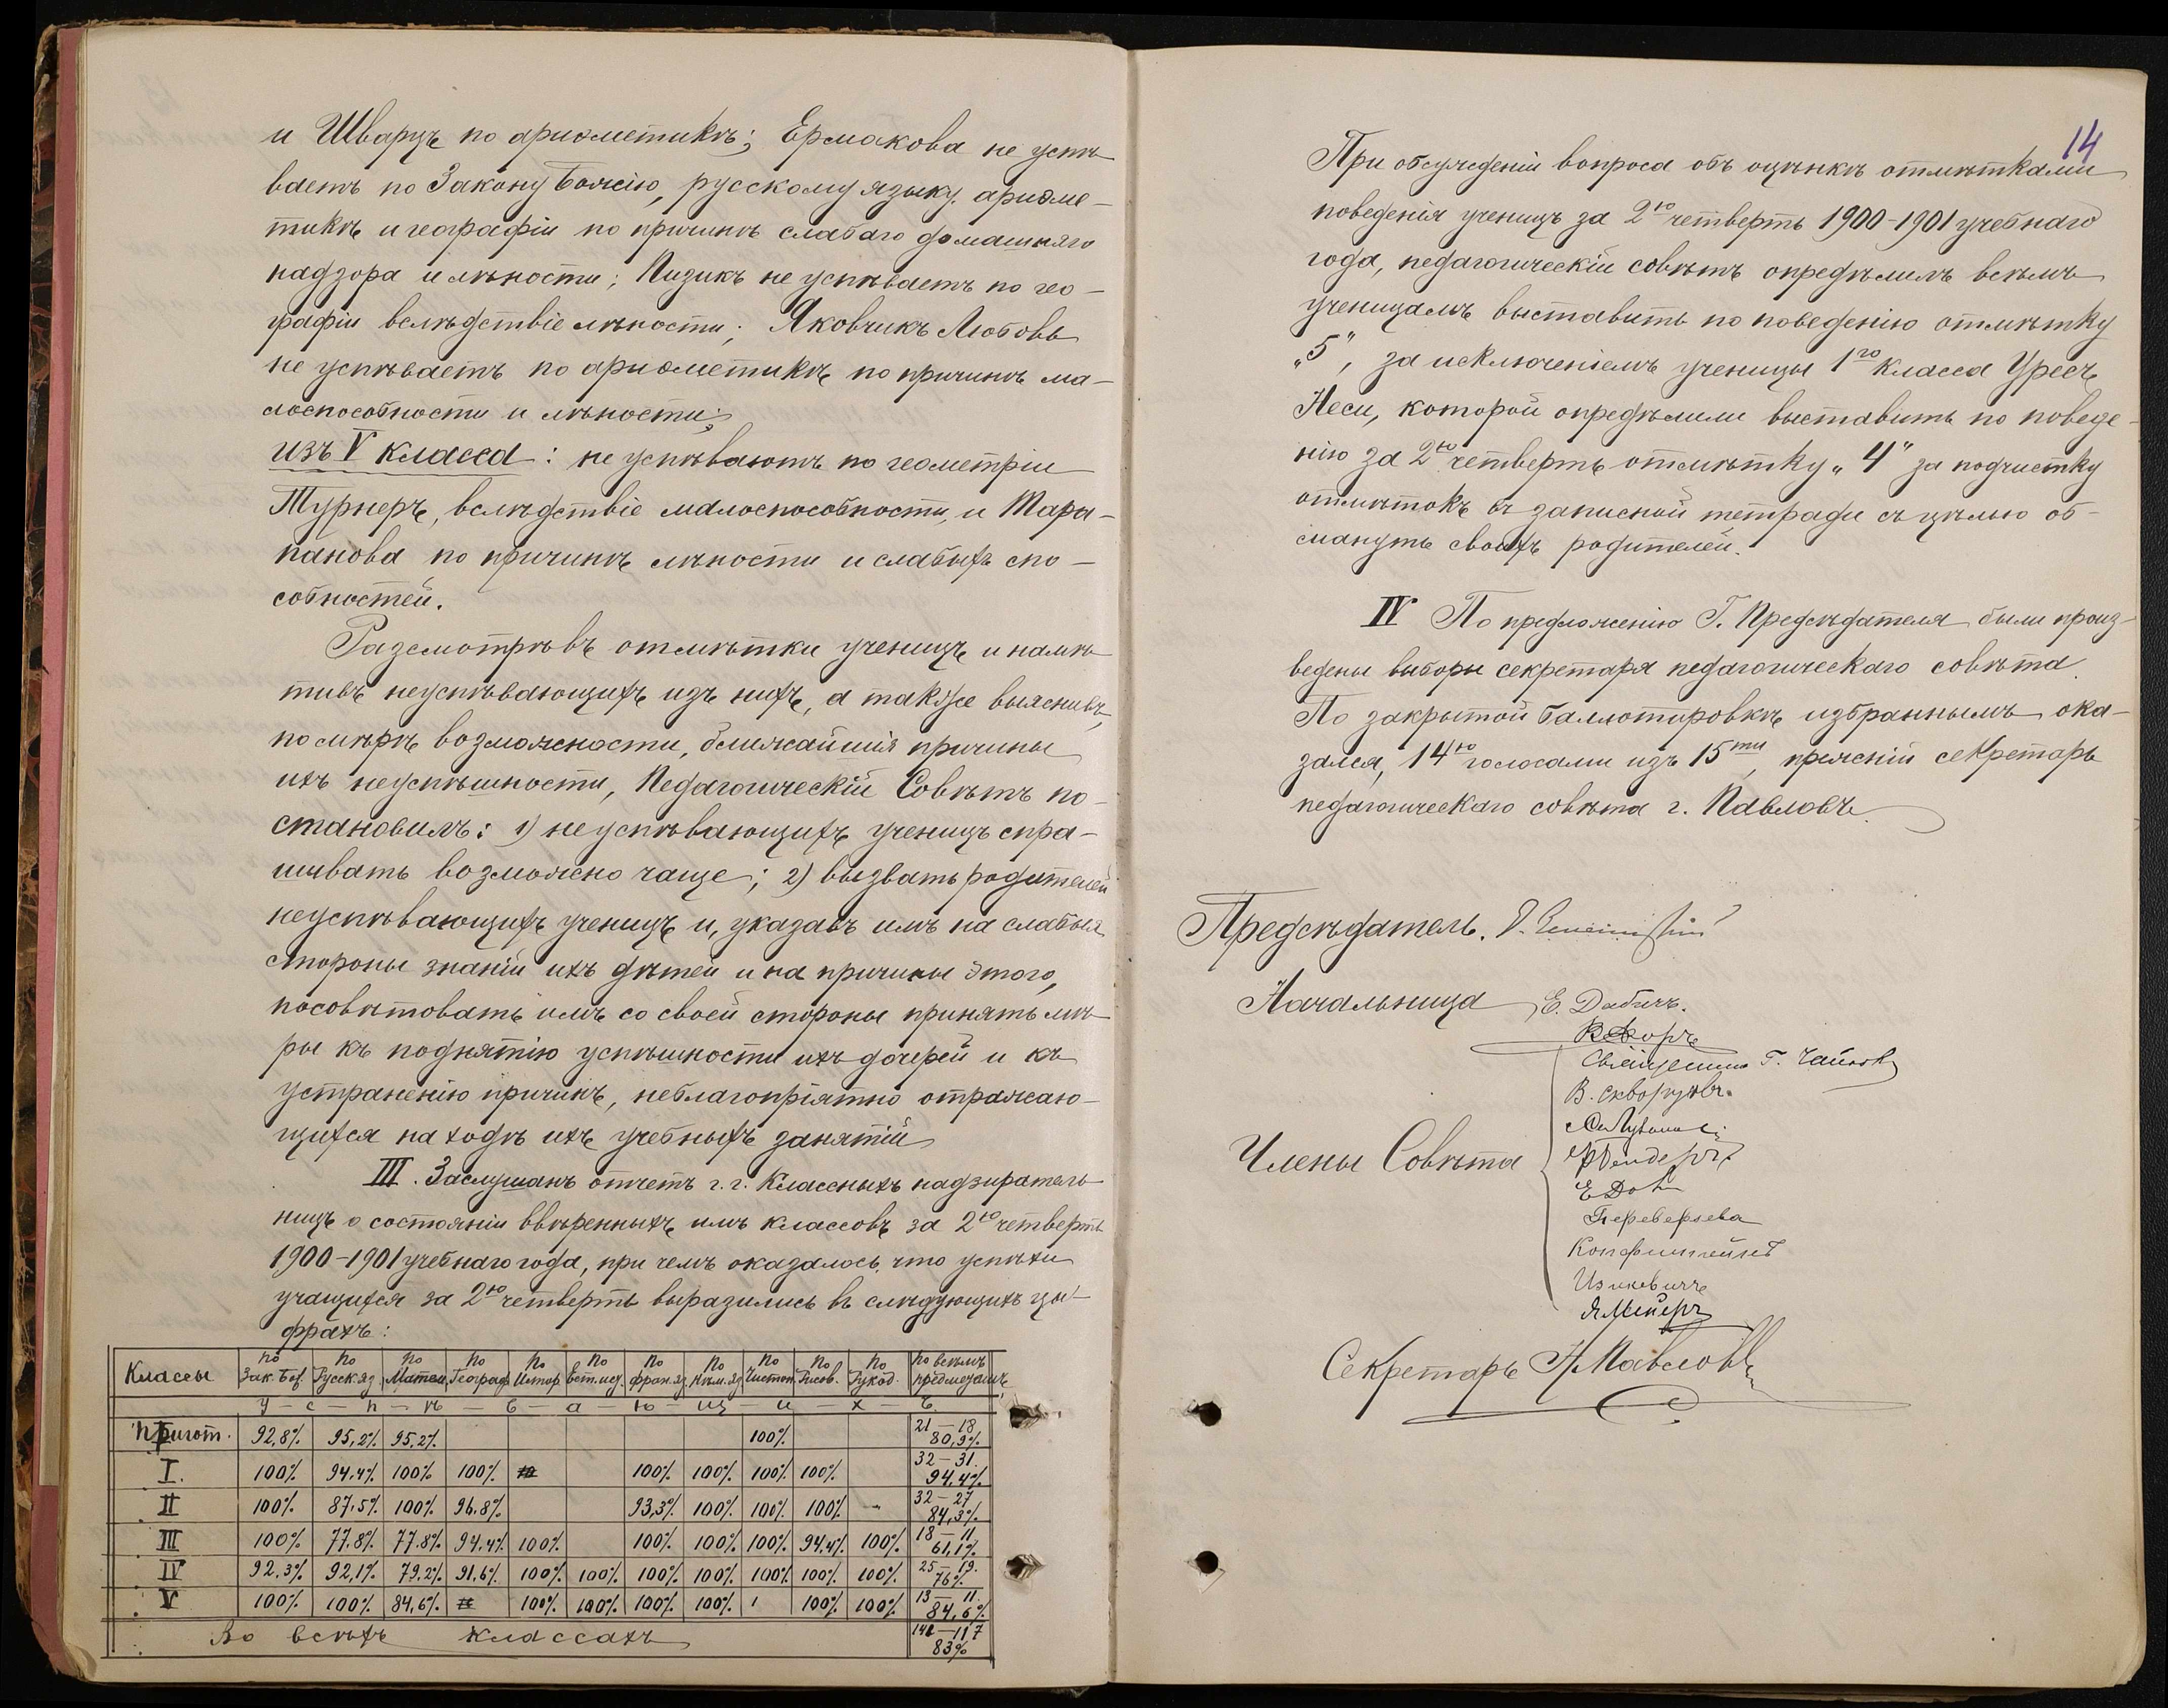 и Шварцъ по ариѳметикѣ; Ермакова не успѣ
ваетъ по Закону Божію, русскому языку, ариѳме-
тикѣ и географіи по причинѣ слабаго домашняго
надзора и лѣности; Пизикъ не успѣваетъ по гео-
графіи вслѣдствіе лѣности; Яковчикъ Любовь
не успѣваетъ по ариѳметикѣ по причинѣ ма-
лоспособности и лѣности;
изъ V класса: не успѣваютъ по геометріи
Турнеръ, вслѣдствіе малоспособности, и Тара-
панова по причинѣ лѣности и слабыхъ спо-
собностей.
Разсмотрѣвъ отмѣтки ученицъ и намѣ
тивъ неуспѣвающихъ изъ нихъ, а также выяснивъ,
по мѣрѣ возможности, ближайшія причины
ихъ неуспѣшности, Педагогическій Совѣтъ по-
становилъ: 1) неуспѣвающихъ ученицъ спра-
шивать возможно чаще; 2) вызвать родителей
неуспѣвающихъ ученицъ и, указавъ имъ на слабыя
стороны знаній ихъ дѣтей и на причины этого,
посовѣтовать имъ со своей стороны принять мѣ-
ры къ поднятію успѣшности ихъ дочерей и къ
устраненію причинъ, неблагопріятно отражаю-
щихся на ходѣ ихъ учебныхъ занятій
III. Заслушанъ отчетъ г.г. Классныхъ надзиратель
ницъ о состояніи ввѣренныхъ имъ классовъ за 2ю четверть
1900-1901 учебнаго года, при чемъ оказалось, что успѣхи
учащихся за 2ю четверть выразились въ слѣдующихъ ци-
фрахъ:
Классы По Зак. Бож. По Русск. яз. По Матем. По Географ. По Истор. По Ест. ист. По фран. яз. По Нѣм. яз. По Чистоп. По Рисов. По Рукод. По всѣмъ предметамъ
У - с - п - ѣ - в - а - ю - щ - и - х - ъ
Пригот. 92,8% 95,2% 95,2% 100% 21-18 80,9%
I. 100% 94,4% 100% 100% 100% 100% 100% 100% 32-31. 94,4%
II 100% 87,5% 100% 96,8% 93,3% 100% 100% 100% - 32-27 84,3%
III 100% 77,8% 77,8% 94,4% 100% 100% 100% 100% 94,4% 100% 18-11 61,1%
IV 92,3% 92,1% 79,2% 91,6% 100% 100% 100% 100% 100% 100% 100% 25-19. 76%
V 100% 100% 84,6% 100% 100% 100% 100% 100% 100% 13-11 84,6%
Во всѣхъ классахъ 141-117 83%
14
При обсужденіи вопроса объ оцѣнкѣ отмѣтками
поведенія ученицъ за 2ю четверть 1900-1901 учебнаго
года, педагогическій совѣтъ опредѣлилъ всѣмъ
ученицамъ выставить по поведенію отмѣтку
„5", за исключеніемъ ученицы 1го класса Уресъ
Неси, которой опредѣлили выставить по поведе-
нію за 2ю четверть отмѣтку „4" за подчистку
отмѣтокъ въ записной тетради съ цѣлью об-
мануть своихъ родителей.
IV По предложенію Г. Предсѣдателя были произ-
ведены выборы секретаря педагогическаго совѣта.
По закрытой баллотировкѣ избраннымъ ока-
зался, 14ю голосами изъ 15ти, прежній секретарь
педагогическаго совѣта г. Павловъ.
Предсѣдатель.
Начальница Е. Дабичъ.
Священникъ Г.
В. Скворцовъ.
Члены Совѣта
Переверзева
Ицковичъ
Я Мейеръ
Секретарь Н. Павловъ